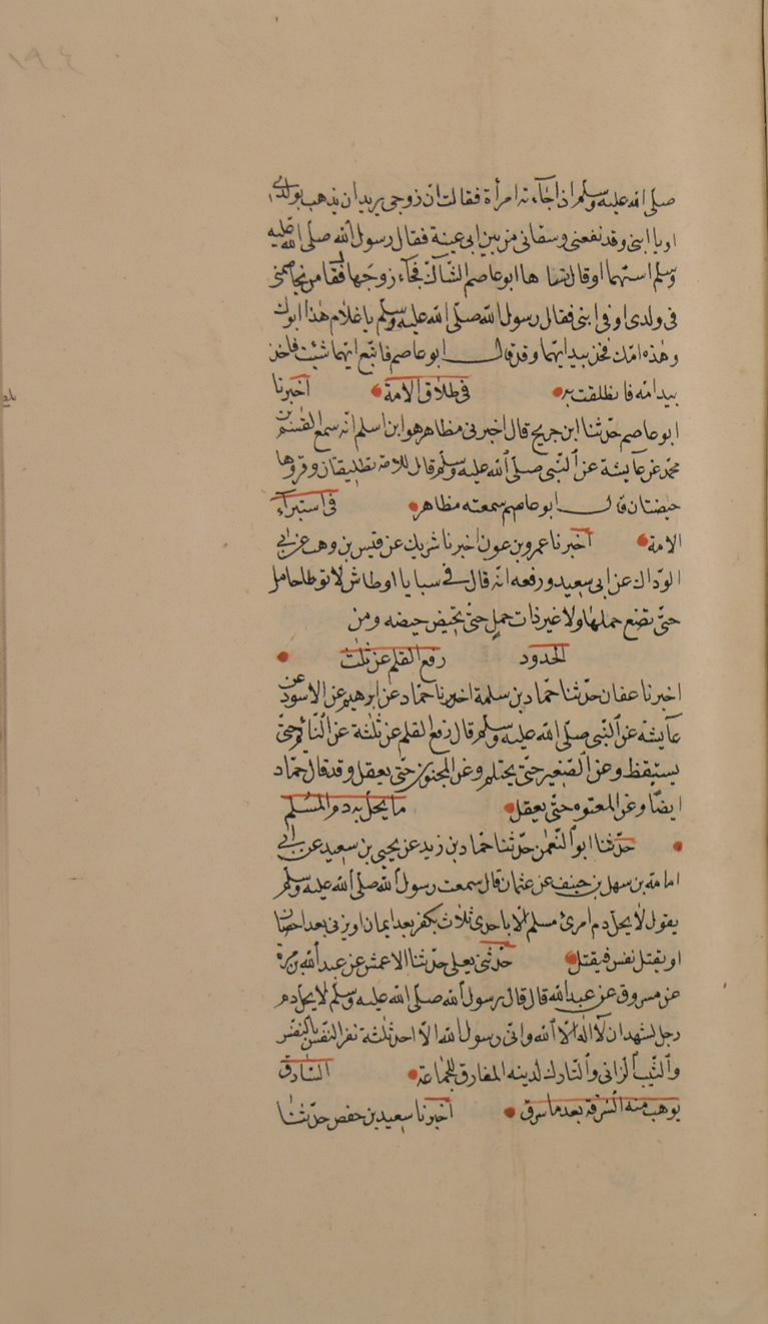 ١٩٤
صلى الله عليه وسلم اذا جآءته امرأة فقالت ان زوجى يريد ان يذهب بولدى
او بابنى وقد نفعنى وسقانى من بير ابى عنبة فقال رسول الله صلى الله عليه
وسلم استهما او قال تساهما ابو عاصم الشاك فجآء زوجها فقال من يخاصمنى
فى ولدى او فى ابنى فقال رسول الله صلى الله عليه وسلم يا غلام هذا ابوك
وهذه امك فخذ بيد ايهما وقد قال ابو عاصم فاتبع ايهما شئت فاخذ
بيد امه فانطلقت به فى طلاق الامة اخبرنا
ابو عاصم حدثنا ابن جريج قال اخبرنى مظاهر هو ابن اسلم انه سمع القسم بن
محمد عن عايشة عن النبى صلى الله عليه وسلم قال للامة تطليقتان وقروها
حيضتان قال ابو عاصم سمعته مظاهر فى استبرآء
الامة اخبرنا عمرو بن عون اخبرنا شريك عن قيس بن وهب عن ابى
الوداك عن ابى سعيد ورفعه انه قال فى سبايا اوطاش لا توطا حامل
حتى تضع حملها ولا غير ذات حمل حتى تحيض حيضه ومن
الحدود رفع القلم عن ثلث
اخبرنا عفان حدثنا حماد بن سلمة اخبرنا حماد عن ابرهيم عن الاسود عن
عآيشة عن النبى صلى الله عليه وسلم قال رفع القلم عن ثلثة عن النائم حتى
يستيقظ وعن الصغير حتى يحتلم وعن المجنون حتى يعقل وقد قال حماد
ايضا وعن المعتوه حتى يعقل ما يحل به دم المسلم
حدثنا ابو النعمن حدثنا حماد بن زيد عن يحيى بن سعيد عن ابى
امامة بن سهل بن حنيف عن عثمان قال سمعت رسول الله صلى الله عليه وسلم
يقول لا يحل دم امرئ مسلم الا باحدى ثلاث بكفر بعد ايمان او يزنى بعد احصان
او يقتل نفس فيقتل حدثنى يعلى حدثنا الاعمش عن عبد الله بن مرة
عن مسروق عن عبد الله قال قال رسول الله صلى الله عليه وسلم لا يحل دم
رجل يشهد ان لا اله الا الله وانى رسول الله الا احد ثلثة نفر النفس بالنفس
والثيب الزانى والتارك لدينه المفارق للجماعة السارق
يوهب منه السرقة بعد ما سرق اخبرنا سعيد بن حفص حدثنا